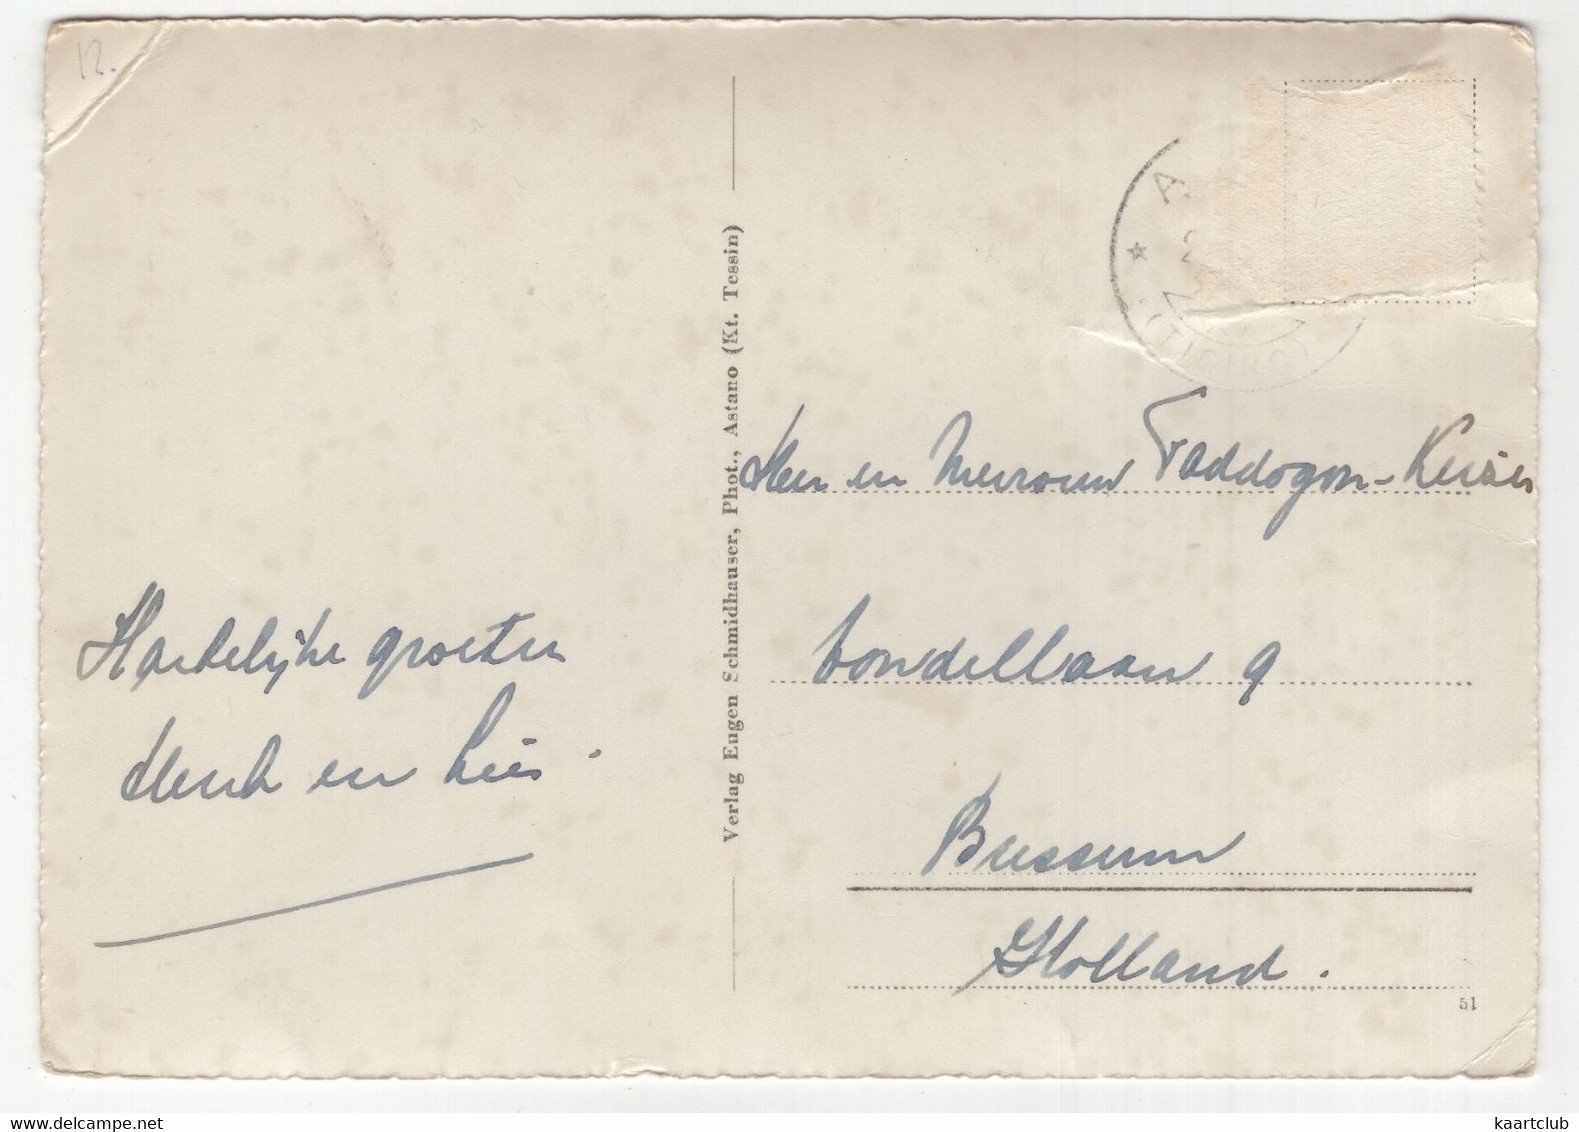 12.
Hartelijke groeten
Henk en Lies.
Verlag Eugen Schmidhauser, Phot., Astano (Kt. Tessin)
A
Heer en Mevrouw Faddegon-Keizer
Vondellaan 9
Bussum
Holland.
51
kaartclub